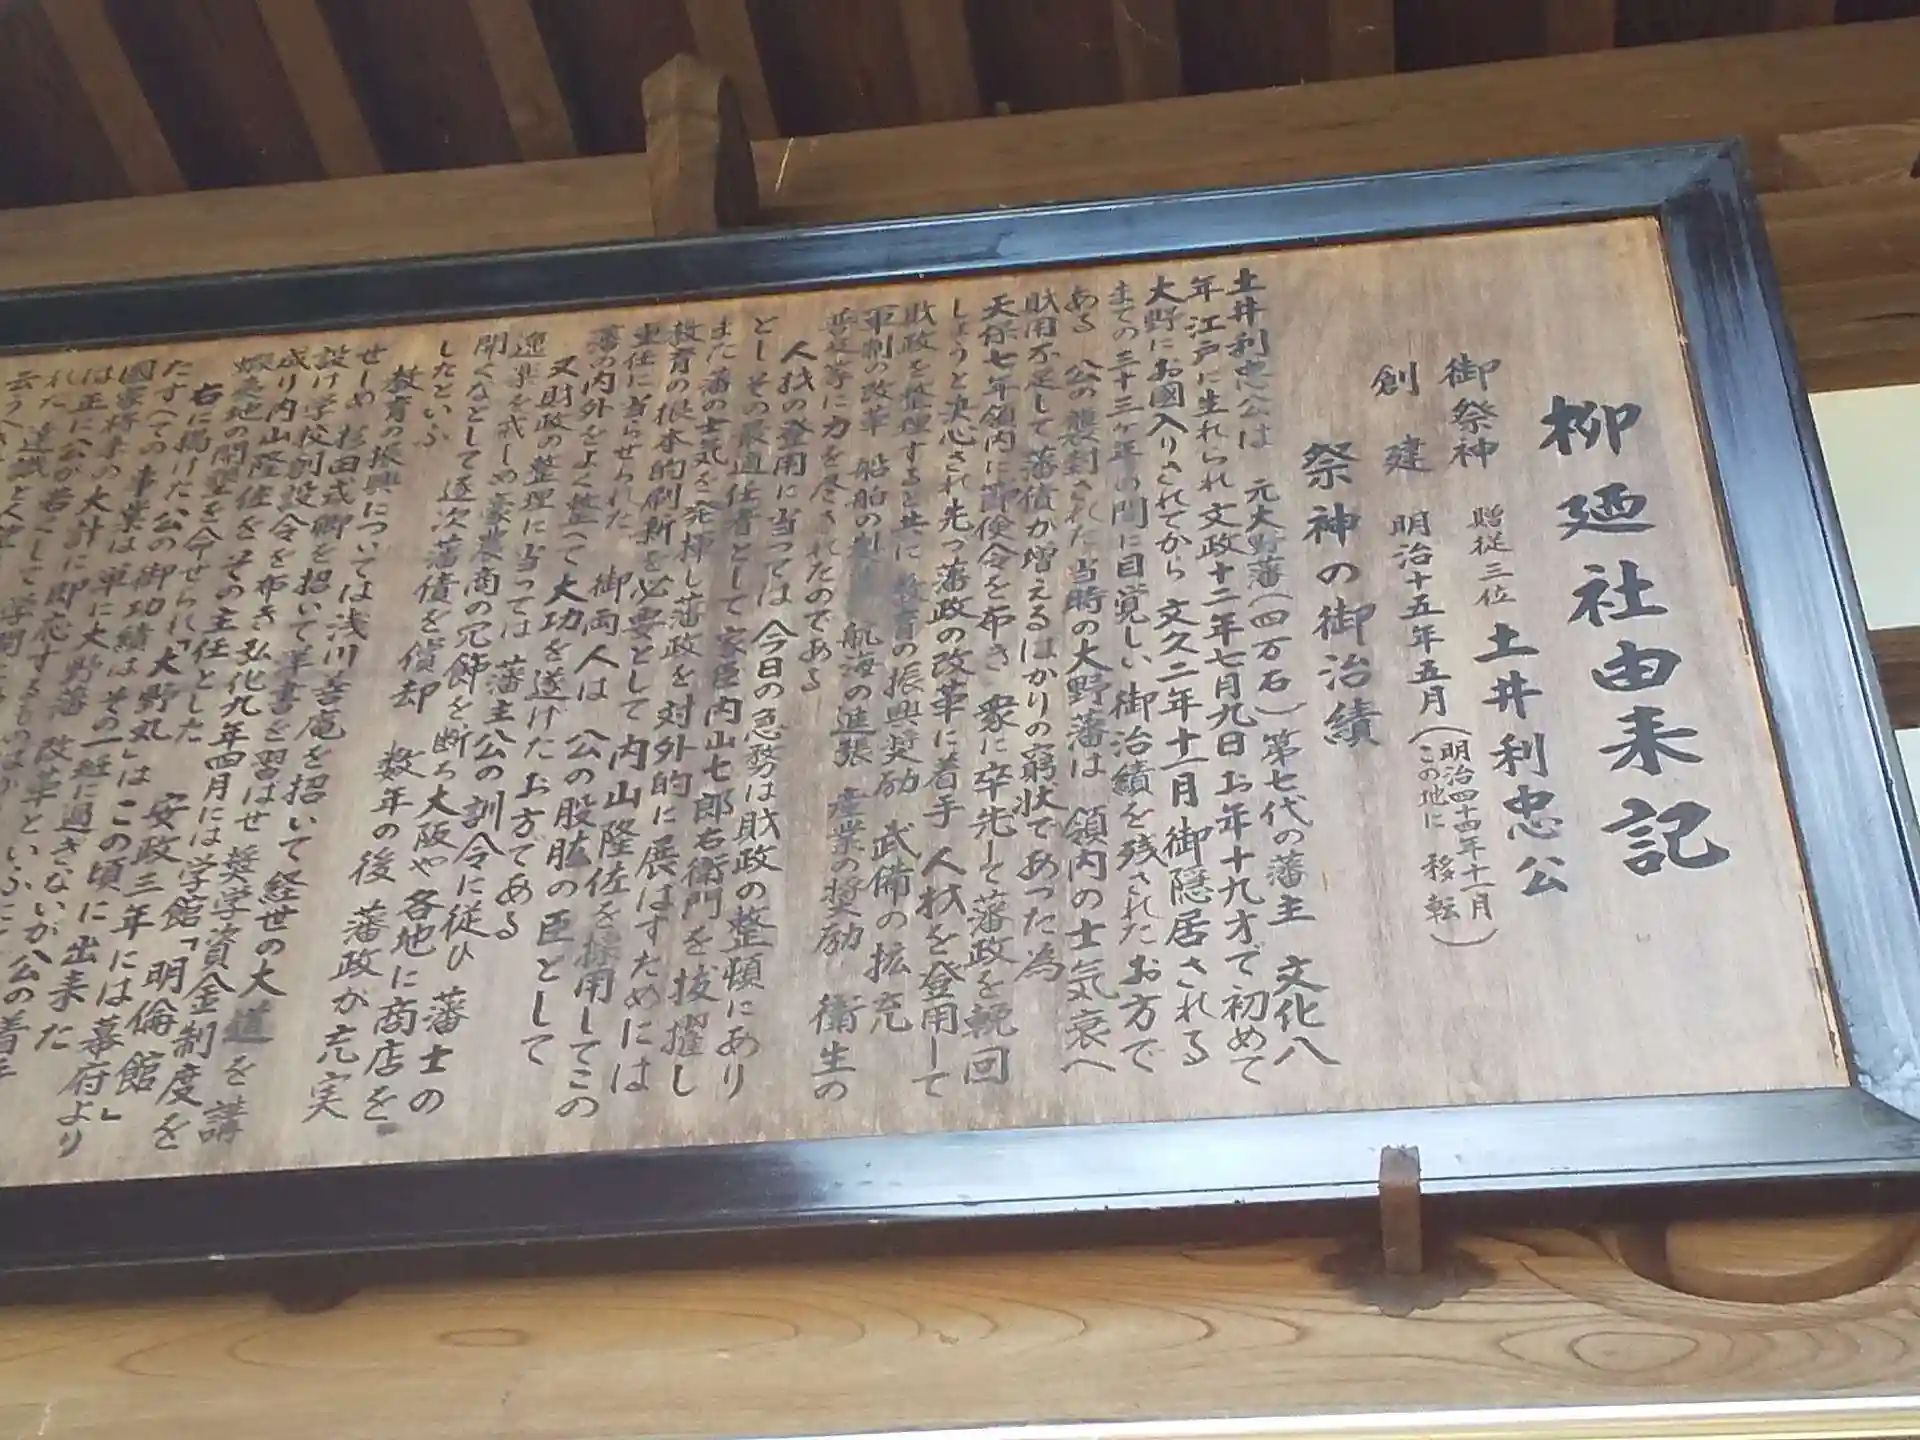 柳廼社由来記
御祭神 贈従三位 土井利忠公
創建 明治十五年五月(明治四十四年十一月この地に移転)
祭神の御治績
土井利忠公は 元大野藩(四万石)第七代の藩主 文化八
年江戸に生れられ 文政十二年七月九日お年十九才で初めて
大野にお國入りされてから 文久二年十一月御隠居される
までの三十三ヶ年の間に目覚しい御治績を残されたお方で
ある 公の襲封された当時の大野藩は 領内の士気衰へ
財用不足して藩債が増えるばかりの窮状であつた為
天保七年領内に節倹令を布き 衆に卒先して藩政を輓回
しようと決心され先つ藩政の改革に着手 人材を登用して
財政を整理すると共に 教育の振興奨励 武備の拡充
軍制の改革 船舶の製造 航海の進張 産業の奨励 衛生の
普及等に力を尽されたのである
人材の登用に当つては 今日の急務は財政の整頓にあり
としその最適任者として家臣内山七郎右衛門を抜擢し
また藩の士気を発揮し藩政を対外的に展ばすためには
教育の根本的刷新を必要として内山隆佐を採用してこの
重任に当らせられた 御両人は 公の股肱の臣として
藩の内外をよく整へて大功を遂げたお方である
又財政の整理に当つては 藩主公の訓令に従ひ 藩士の
遊惰を戒しめ豪農商の冗飾を断ち大阪や各地に商店を
開くなどして逐次藩債を償却 数年の後 藩政が充実
したといふ
教育の振興については浅川善庵を招いて経世の大道を講
せしめ 杉田成卿を招いて洋書を習はせ 奨学資金制度を
設け学校創設令を布き 弘化九年四月には学館「明倫館」
成り内山隆佐をその主任とした 安政三年には幕府より
蝦夷地の開墾を令せられ「大野丸」はこの頃に出来た
右に掲げた公の御功績はその一経に過ぎないが公の着手
たすべての事業は単に大野藩 改革といふに
國家将来の大計に即応するものばか
は正に公が若くして学問
れた 達識と
云うべき